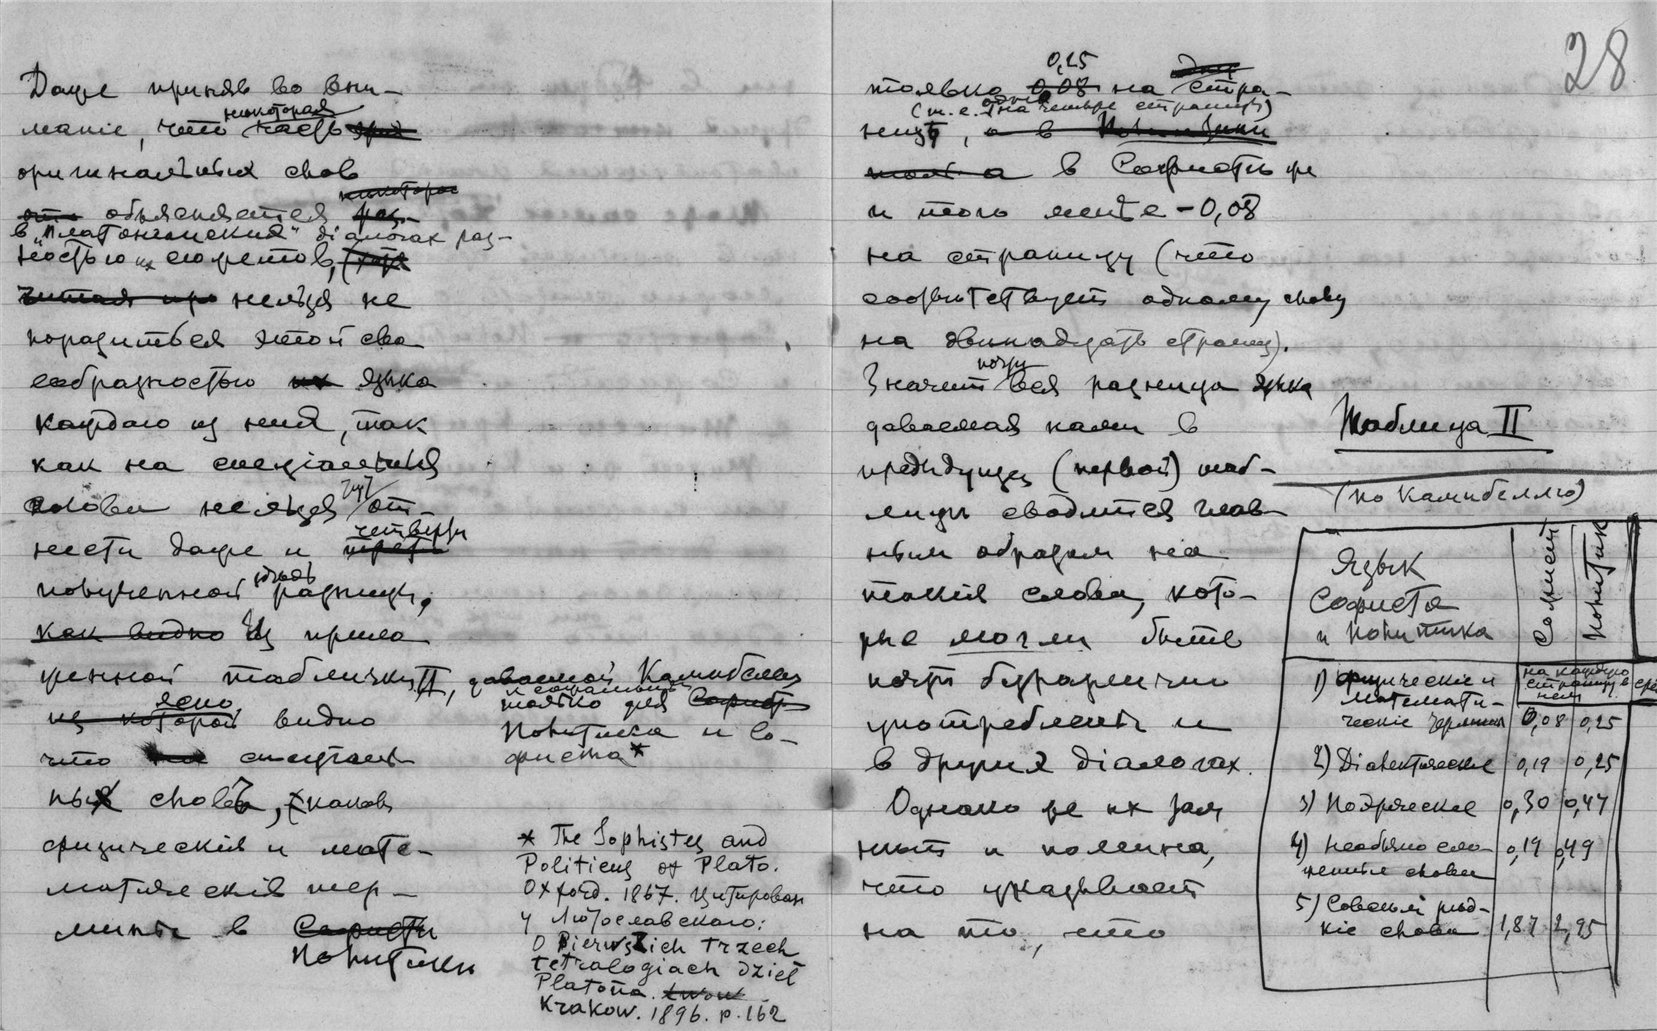 Даже принявъ во вни-
маніе, что некоторая часть
оригинальныхъ словъ
объясняется
в "платоническихъ" діалогахъ раз-
ностью их сюжетов,
нельзя не
поразиться этой сво
еобразностью языка
каждаго из нихъ, так
как на спеціальныя
слова нельзя отъ-
нести даже и четверти
полученной здѣсь разницы.
Из прило
женной таблички II, даваемой Кампбелем
только для
Политика и Со-
фиста*
ясно видно
что спеціаль-
ных словъ, каковы
физическія и мате-
матическія тер-
мины в
Политикѣ
* The Sophistes and
Politicus of Plato.
Oxford. 1867. Цитирован
у Лютославскаго:
O Pierwszich trzech
tetralogiach dzieł
Platona.
Krakow. 1896. p. 162
28
только 0,25 на стра-
(т.е. одно на четыре страницы)
ницу,
в Софистѣ же
и того менѣе - 0,08
на страницу (что
соотвѣтствует одному слову
на двѣнадцать страниц).
Значит почти вся разница языка
даваемая нами в
предыдущей (первой) таб-
лицѣ сводится глав
ным образом на
такія слова, кото-
рые могли быть
почти безразлично
употреблены и
в других діалогах.
Однако же их замѣ
нитъ и помина,
что указывает
на то, что
Таблица II
(по Кампбеллю)
Язык
Софиста
и Политика
Софист
Политик
на каждую
страницу в
нем
1) физическіе и
математи-
ческіе термины 0,08 0,25
2) Діалектическіе 0,19 0,25
3) Поэтическіе 0,30 0,47
4) Необыкновенные слова 0,19 0,49
5) Совсем ръд-
кіе слова 1,87 2,95